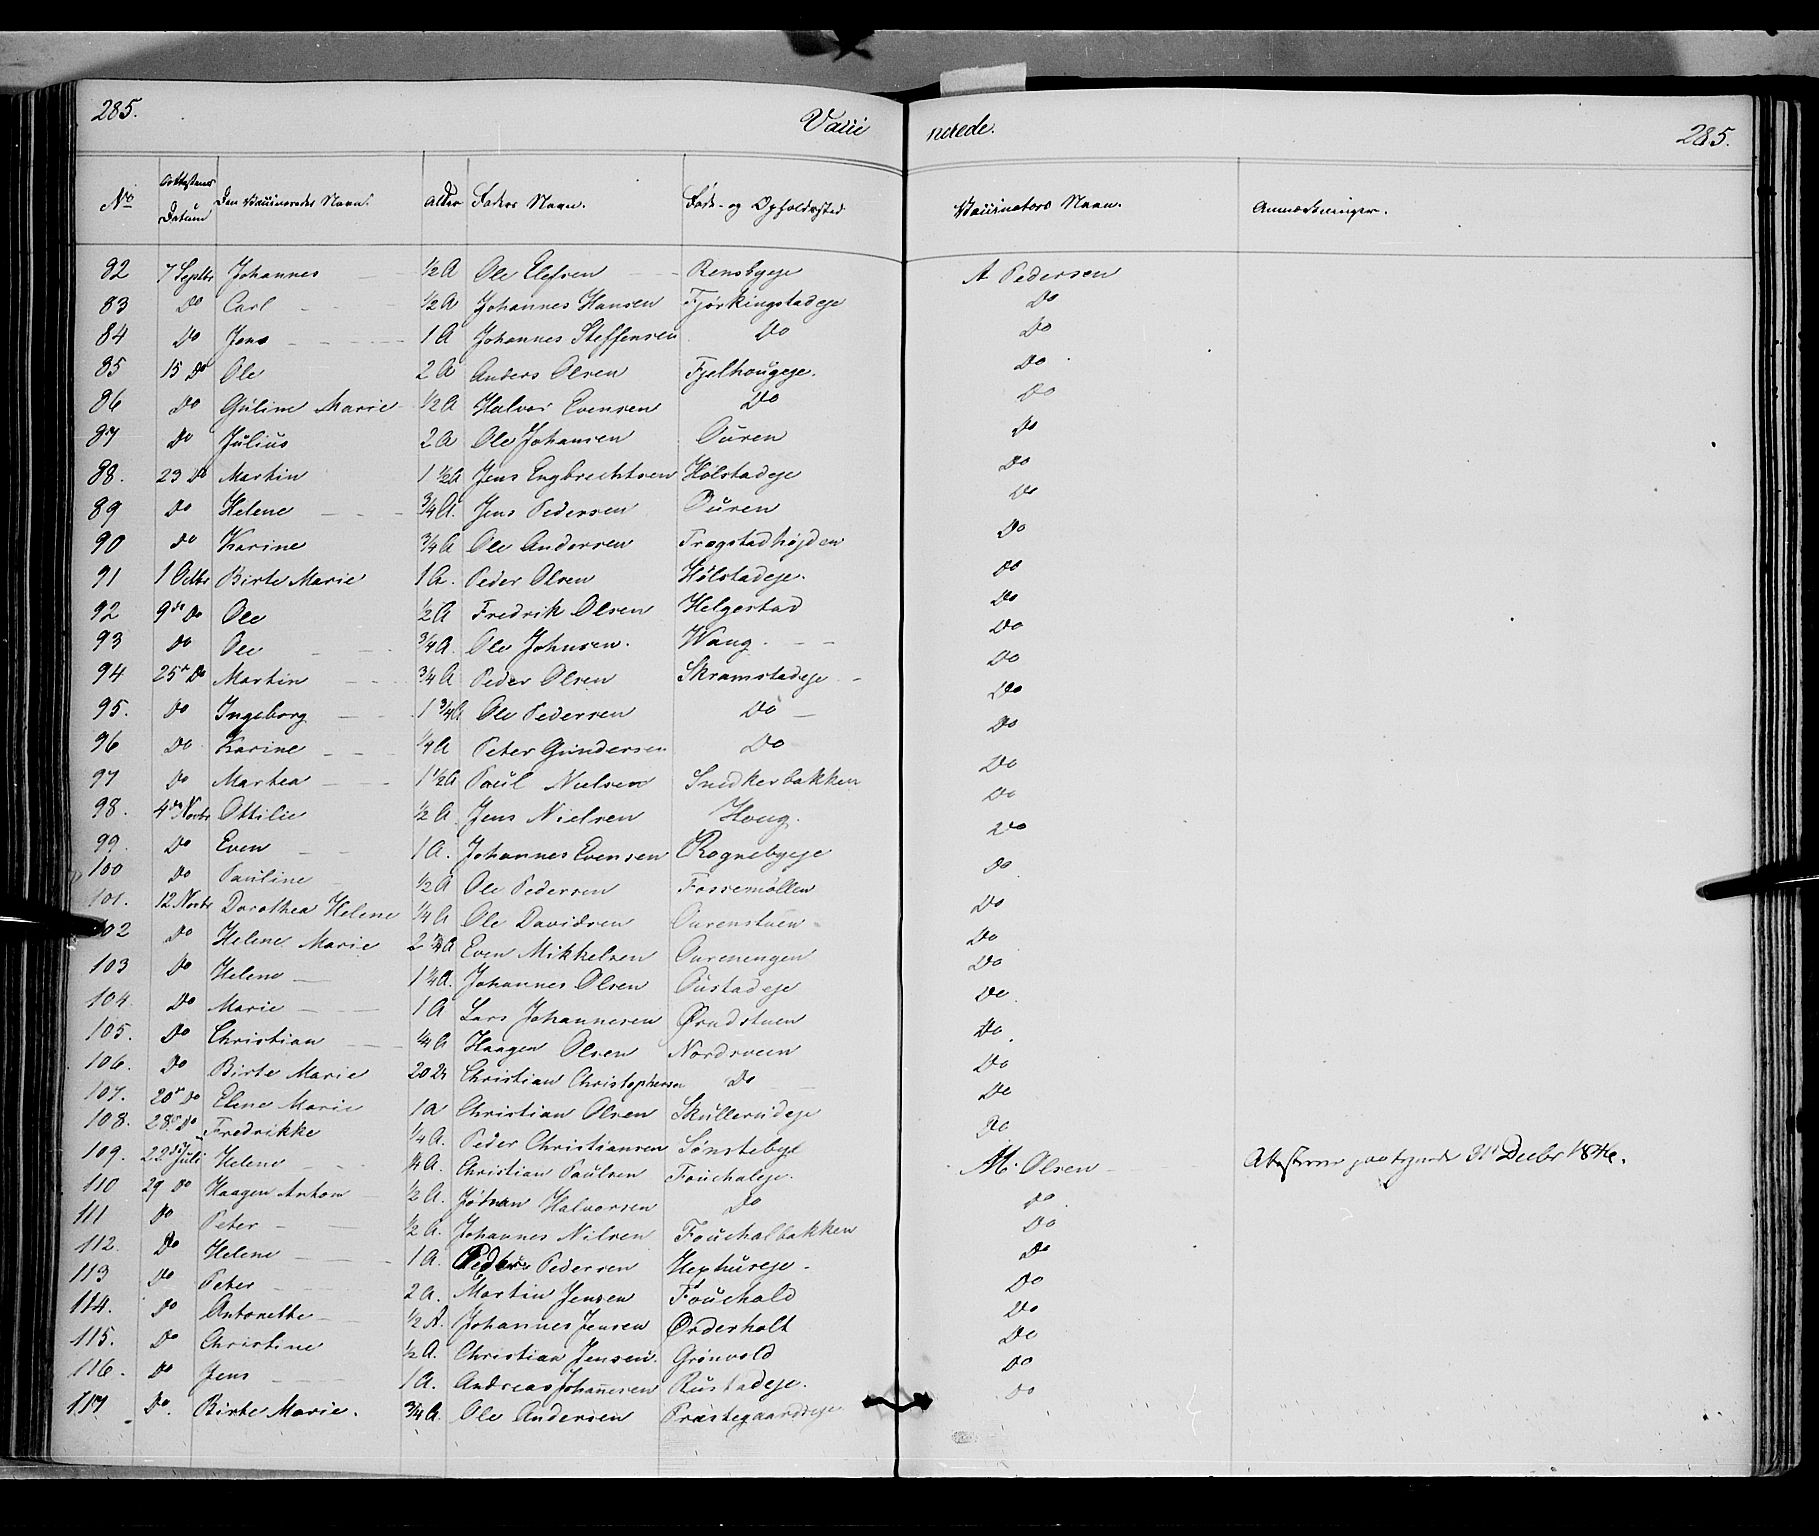 285. Vacci nerede. 285.
No Attestens Datum Den Vaccineredes Navn. Alder Faders Navn. Føde- og Opholdssted Vaccinators Navn. Anmærkninger.
82 7 Septbr Johannes ½ A Ole Elefsen Rensbyeje A Pedersen
83 Do Carl ½ A Johannes Hansen Fjørkingstadeje Do
84 Do Jens 1 A Johannes Steffensen Do Do
85 15 Do Ole 2 A Anders Olsen Fjelhougeje. Do
86 Do Guline Marie ½ A Halvor Evensen Do Do
87 Do Julius 2 A Ole Johansen Ouren Do
88. 23 Do Martin 1 ½ A Jens Engbrechtsen Hølstadeje Do
89 Do Helene ¾ A. Jens Pedersen Ouren Do
90 Do Karine ¾ A Ole Andersen Trøgstadhøjden Do
91 1 Octbr Birte Marie 1 A. Peder Olsen Hølstadeje. Do
92 9de Do Ole ½ A Fredrik Olsen Helgestad Do
93 Do Ole ¾ A. Ole Johnsen. Waag. Do
94 25 Do Martin ¾ A Peder Olsen Skramstadeje Do
95. Do Ingeborg 1 ¾ A Ole Pedersen Do Do
96 Do Karine ¼ A Peter Gundersen Do Do
97 Do Marthea 1 ½ A Poul Nielsen Snedkerbakken Do
98. 4de Novbr Ottilie ½ A. Jens Nielsen Houg. Do
99. Do Even 1 A. Johannes Evensen Rognebyeje Do
100 Do Pauline ½ A Ole Pedersen Fossemøllen Do
101. 12 Novbr Dorothea Helene ¼ A Ole Davidsen Ourenstuen Do
102 Do Helene Marie 2 ¾ A Even Mikkelsen Ourenengen Do
103 Do Helene 1 ¼ A. Johannes Olsen Oustadeje Do
104. Do Marie 1 A Lars Johannesen Ørudstuen Do
105. Do Christian ¼ A Haagen Olsen Nordsveen Do.
106. Do Birte Marie Christian Christophersen Do Do
107. 20 Do Elene Marie 1 A Christian Olsen Skullerudeje Do
108. 28 Do Fredrikke ¼ A. Peder Christiansen Sønstebye Do
109. 22de Juli Helene ¼ A. Christian Paulsen Fouchaleje. M. Olsen 31t Decbr
110 29 Do Haagen Anton ½ A. Halvorsen Do Do
111 Do Peter ½ A. Johannes Nilsen Fouchalbakken Do
112. Do Helene 1 A. Peder Pedersen Do
113 Do Peter 2 A. Martin Jensen Fouchald Do
114. Do Antonette ½ A. Johannes Jensen Ørderholt Do
115. Do Christine ½ A. Christian Jensen. Grønvold Do
116. Do Jens 1 A. Andreas Johannesen Rustadeje. Do
117. Do. Birte Marie. ¾ A. Ole Andersen Præstegaardseje Do